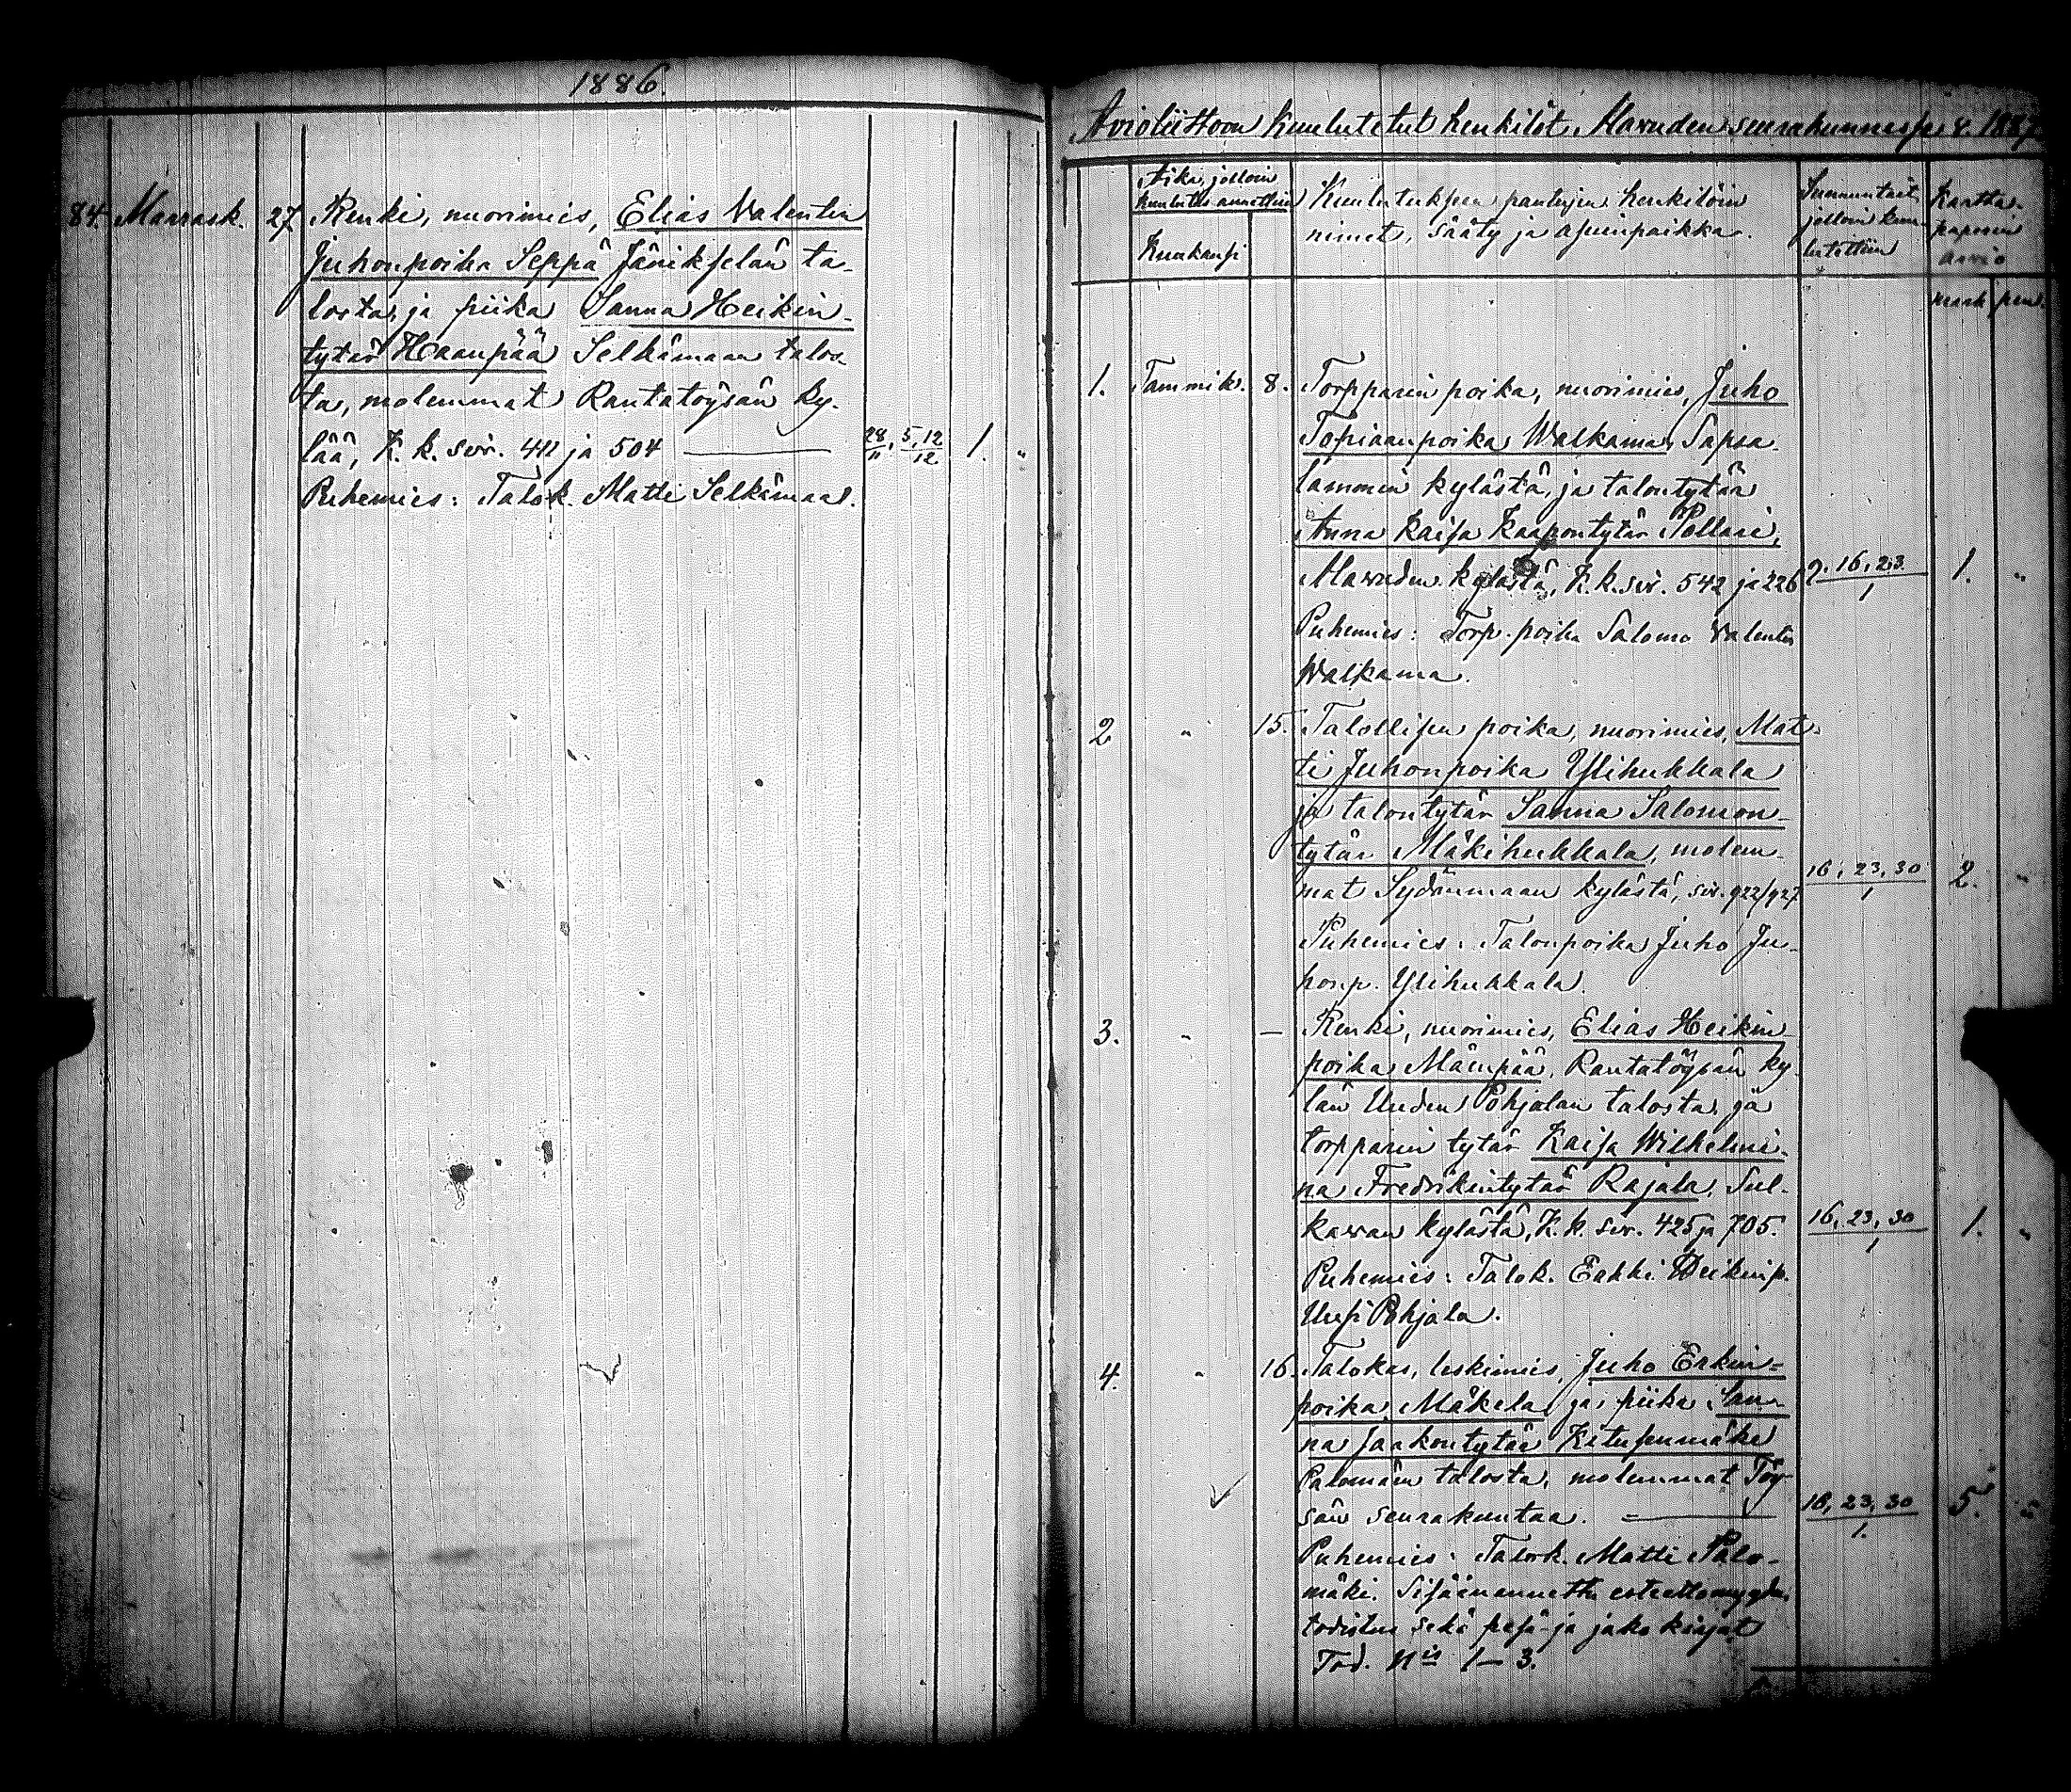 1886.
84. Marrask. 27. Renki, nuorimies, Elias Valentin
Juhonpoika Seppä Jänikselän ta-
losta, ja piika Sanna Heikin-
tytär Haanpää Selkämaan talos-
ta, molemmat Rantatöysän ky-
lää, K. k. siv. 411 ja 504 28/11, 5, 12/12 1. "
Puhemies: Talok. Matti Selkämaa.
Avioliittoon kuulutetut henkilöt Alavuden seurakunnassa v. 1887
Aika, jolloin
kuulutus annettiin
Kuukausi
Kuulutukseen pantujen henkilöin
nimet, sääty ja asuinpaikka.
Sunnuntait,
jolloin kuu-
lutettiin
Kartta-
paperin
arvo
mark pen.
1. Tammik. 8. Torpparin poika, nuorimies, Juho
Topiaanpoika Walkama, Sapsa-
lammin kylästä, ja talontytär
Anna Kaisa Kaapontytär Pollari,
Alavuden kylästä, K. k. siv. 542 ja 226 9, 16, 23/1 1. "
Puhemies: Torp. poika Salomo Valentin
Walkama.
2 " 15. Talollisen poika, nuorimies, Mat-
ti Juhonpoika Ylihukkala
ja talontytär Sanna Salomon-
tytär Mäkihukkala, molem-
mat Sydänmaan kylästä, siv. 922/927 16, 23, 30/1 2. "
Puhemies: Talonpoika Juho Ju-
honp. Ylihukkala.
3. " — Renki, nuorimies, Elias Heikin-
poika Mäenpää, Rantatöysän ky-
län Uuden Pohjalan talosta, ja
torpparin tytär Kaisa Wilhelmi-
na Fredrikintytär Rajala, Sul-
kavan kylästä, K. k. siv. 425 ja 705. 16, 23, 30/1 1. "
Puhemies: Talok. Erkki Heikinp.
Uusi Pohjala.
4. " 16. Talokas, leskimies, Juho Erkin-
poika Mäkelä ja piika San-
na Jaakontytär Ketusenmäki
Palomäen talosta, molemmat Töy-
sän seurakuntaa. 16, 23, 30/1. 5. "
Puhemies: Talok. Matti Palo-
mäki. Sisäänannettu esteettömyyden
todistus sekä pesä- ja jako kirjat
Tod. Nis 1–3.